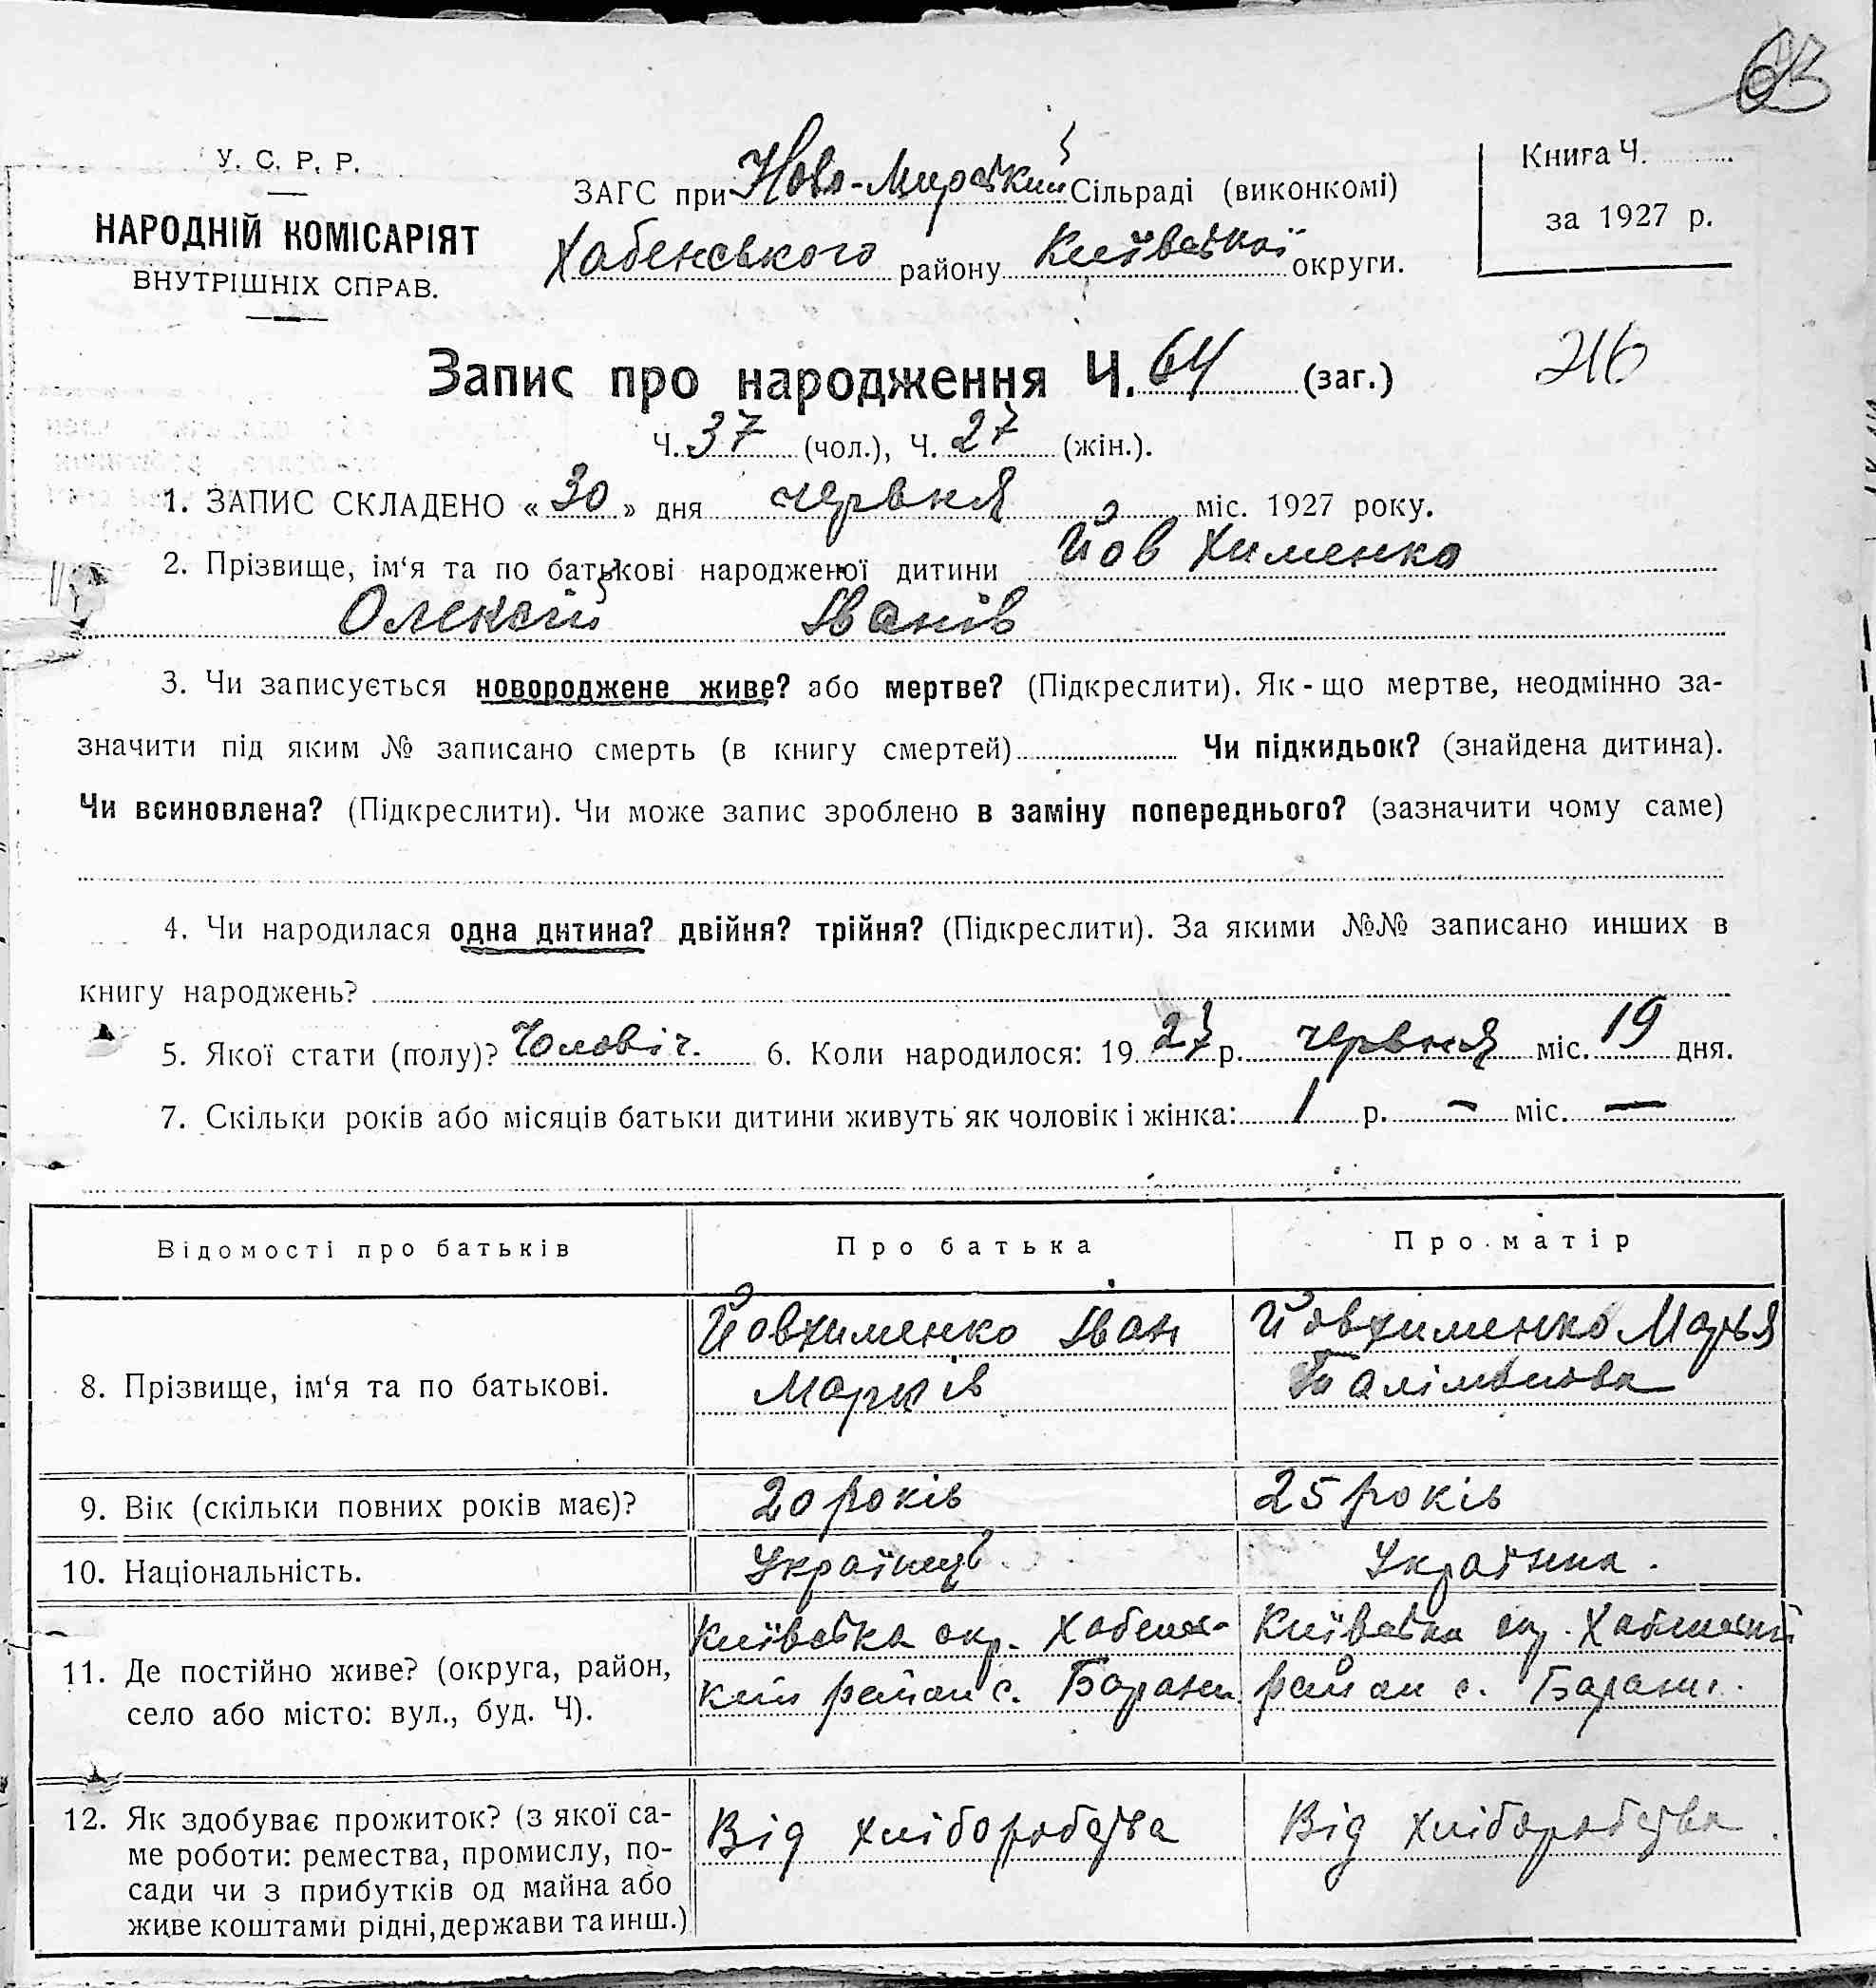 63
У. С. Р. Р.
НАРОДНІЙ КОМІСАРІЯТ
ВНУТРІШНІХ СПРАВ.
ЗАГС при Ново-Мирский Сільраді (виконкомі)
Хабенського району Київської округи.
Книга Ч.
за 1927 р.
Запис про народження Ч. 64 (заг.)
216
Ч. 37 (чол.), Ч. 27 (жін.).
1. ЗАПИС СКЛАДЕНО « 30 » дня червня міс. 1927 року.
2. Прізвище, ім'я та по батькові народженої дитини Йовхименко
Олексій Іванів
3. Чи записується новороджене живе? або мертве? (Підкреслити). Як-що мертве, неодмінно за-
значити під яким № записано смерть (в книгу смертей) Чи підкидьок? (знайдена дитина).
Чи всиновлена? (Підкреслити). Чи може запис зроблено в заміну попереднього? (зазначити чому саме)
4. Чи народилася одна дитина? двійня? трійня? (Підкреслити). За якими №№ записано инших в
книгу народжень?
5. Якої стати (полу)? Чоловіч. 6. Коли народилося: 1927 р. червня міс. 19 дня.
7. Скільки років або місяців батьки дитини живуть як чоловік і жінка: 1 р. – міс. —
Відомості про батьків Про батька Про матір
8. Прізвище, ім'я та по батькові.
Йовхименко Іван
Марків
Йовхименко Марья
9. Вік (скільки повних років має)? 20 років 25 років
10. Національність. Українець Українка.
11. Де постійно живе? (округа, район,
село або місто: вул., буд. Ч).
Київська окр. Хабенс-
кий район с. Барани
Київська окр. Хабенский
район с. Барани.
12. Як здобуває прожиток? (з якої са-
ме роботи: ремества, промислу, по-
сади чи з прибутків од майна або
живе коштами рідні, держави та инш.)
Від хліборобства
Від хліборобства